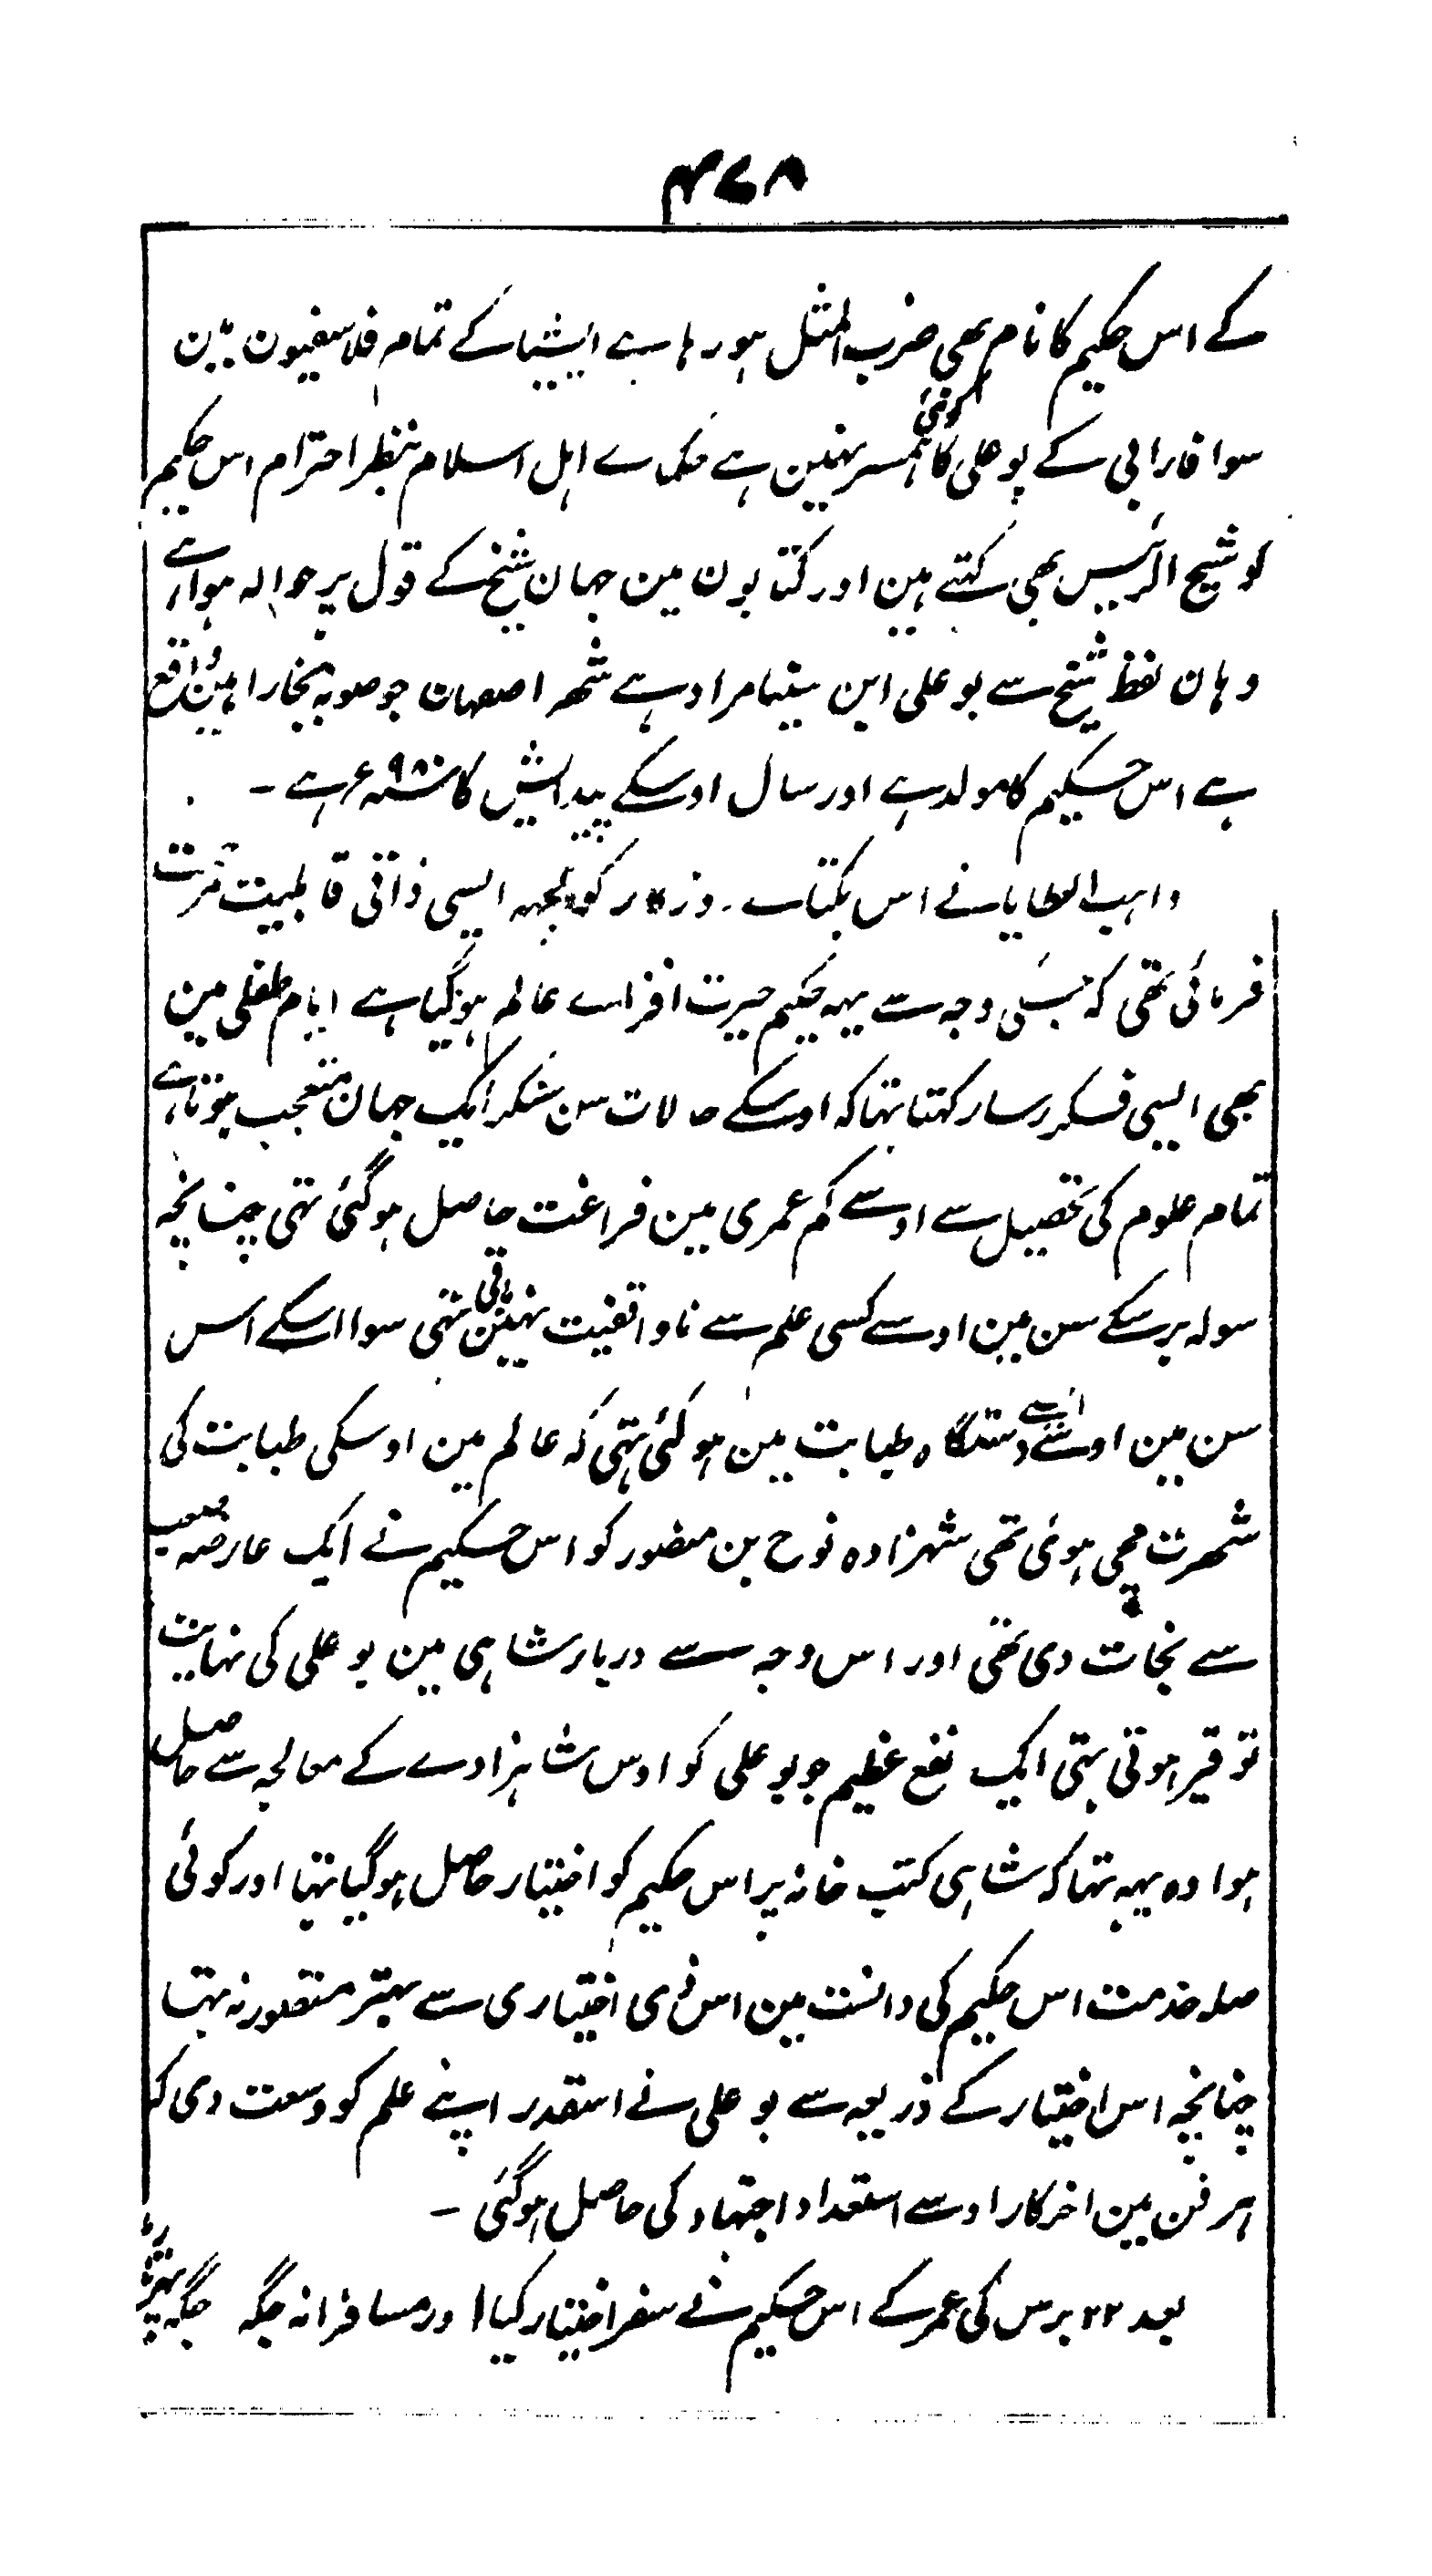 ۴۷۸
کے اس حکیم کا نام بھی ضرب المثل ہو رہا ہے ایشیا کے تمام فلاسفیون مین
سوا فارابی کے بو علی کا کوئی ہمسر نہین ہے حکماے اہل اسلام بنظر احترام اس حکیم
کو شیخ الرئیس بھی کہتے ہین اور کتابون مین جہان شیخ کے قول پر حوالہ ہوا ہے
وہان لفظ شیخ سے بو علی ابن سینا مراد ہے شہر اصفہان جو صوبہ بخارا مین واقع
ہے اس حکیم کا مولد ہے اور سال اوسکے پیدایش کا سنہ ۹۸۰ء ہے ۔
واہب العطایا نے اس یکتاے روزگار کو کچہہ ایسی ذاتی قابلیت مرحمت
فرمائی تھی کہ جسکی وجہ سے یہہ حکیم حیرت افزاے عالم ہوگیا ہے ایام طفلی مین
بھی ایسی فکر رسا رکہتا تہا کہ اوسکے حالات سن سنکر ایک جہان متعجب ہوتا ہے
تمام علوم کی تحصیل سے اوسے کم عمری مین فراغت حاصل ہوگئی تہی چنانچہ
سولہ برسکے سن مین اوسے کسی علم سے ناواقفیت نہین باقی تہی سوا اسکے اس
سن مین اوسے ایسی دستگاہ طبابت مین ہوگئی تہی کہ عالم مین اوسکی طبابت کی
شہرت مچی ہوئی تھی شہزادہ نوح بن منصور کو اس حکیم نے ایک عارضہ صعب
سے نجات دی تھی اور اس وجہ سے دربار شاہی مین بو علی کی نہایت
توقیر ہوتی تہی ایک نفع عظیم جو بو علی کو اوس شاہزادے کے معالجہ سے حاصل
ہوا وہ یہہ تہا کہ شاہی کتب خانہ پر اس حکیم کو اختیار حاصل ہوگیا تہا اور کوئی
صلہ خدمت اس حکیم کی دانست مین اس ذی اختیاری سے بہتر متصور نہ تہا
چنانچہ اس اختیار کے ذریعہ سے بو علی نے استقدر اپنے علم کو وسعت دی کہ
ہر فن مین اخرکار اوسے استعداد اجتہاد کی حاصل ہوگئی ۔
بعد ۲۲ برس کی عمر کے اس حکیم نے سفر اختیار کیا اور مسافرانہ جگہ جگہ پہرتا رہا